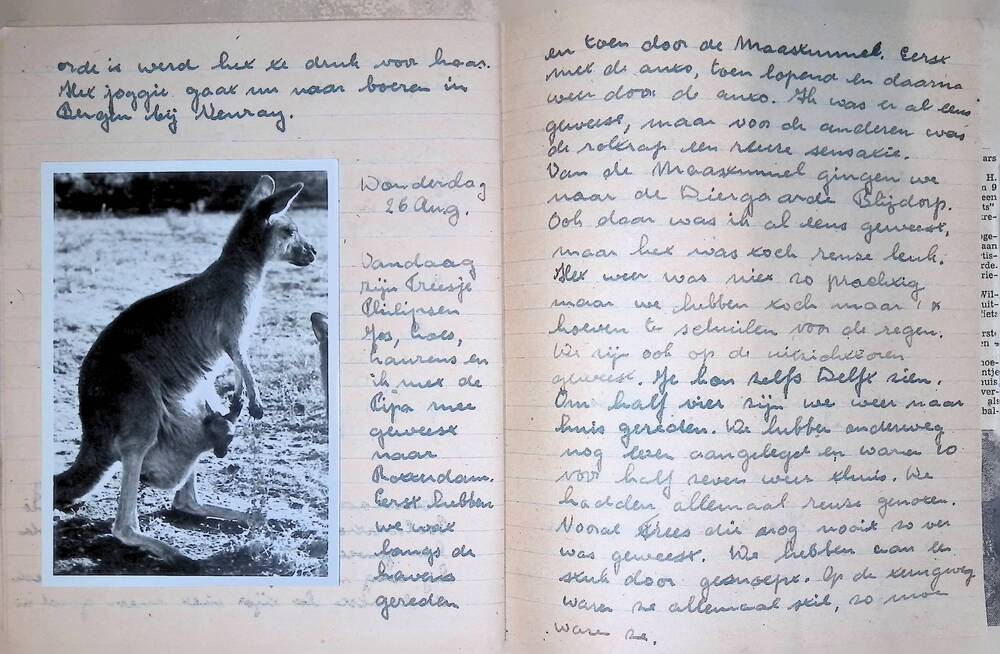 orde is werd het te druk voor haar.
Het joggie gaat nu naar boeren in
Bergen bij Venray.
Wonderdag
26 Aug.
Vandaag
zijn Treesje
Philipsen
Jos, Loes,
Laurens en
ik met de
Pipa mee
geweest
naar
Rotterdam.
Eerst hebben
we wat
langs de
havens
gereden
en toen door de Maastunnel. Eerst
met de auto, toen lopend en daarna
weer door de auto. Ik was er al eens
geweest, maar voor de anderen was
de roltrap een reuze sensatie.
Van de Maastunnel gingen we
naar de Diergaarde Blijdorp.
Ook daar was ik al eens geweest,
maar het was toch reuze leuk.
Het weer was niet zo prachtig
maar we hebben toch maar 1 x
hoeven te schuilen voor de regen.
We zijn ook op de uitzichttoren
geweest. Je kon zelfs Delft zien.
Om half vier zijn we weer naar
huis gereden. We hebben onderweg
nog even aangelegd en waren zo
voor half zeven weer thuis. We
hadden allemaal reuze genoten.
Vooral Trees die nog nooit zo ver
was geweest. We hebben aan een
stuk door gesnoept. Op de terugweg
waren ze allemaal stil, zo moe
waren ze.